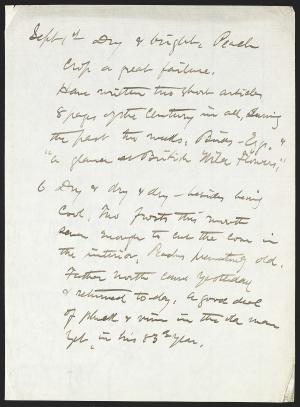 Sept 1st Dry & bright. Peach
Crop a great failure.
Have written two short articles
8 pages of the Century in all, during
the past two weeks, Birds-Egs. &
"a glance at British Wild Flowers,"
6 Dry & dry & dry - besides being
Cool. Two frosts this month
severe enough to cut the corn in
the interior. Roads prematurely old.
Father North came Yesterday
& returned to day. A good deal
of pluck & vim in the old man
yet, in his 83d year.